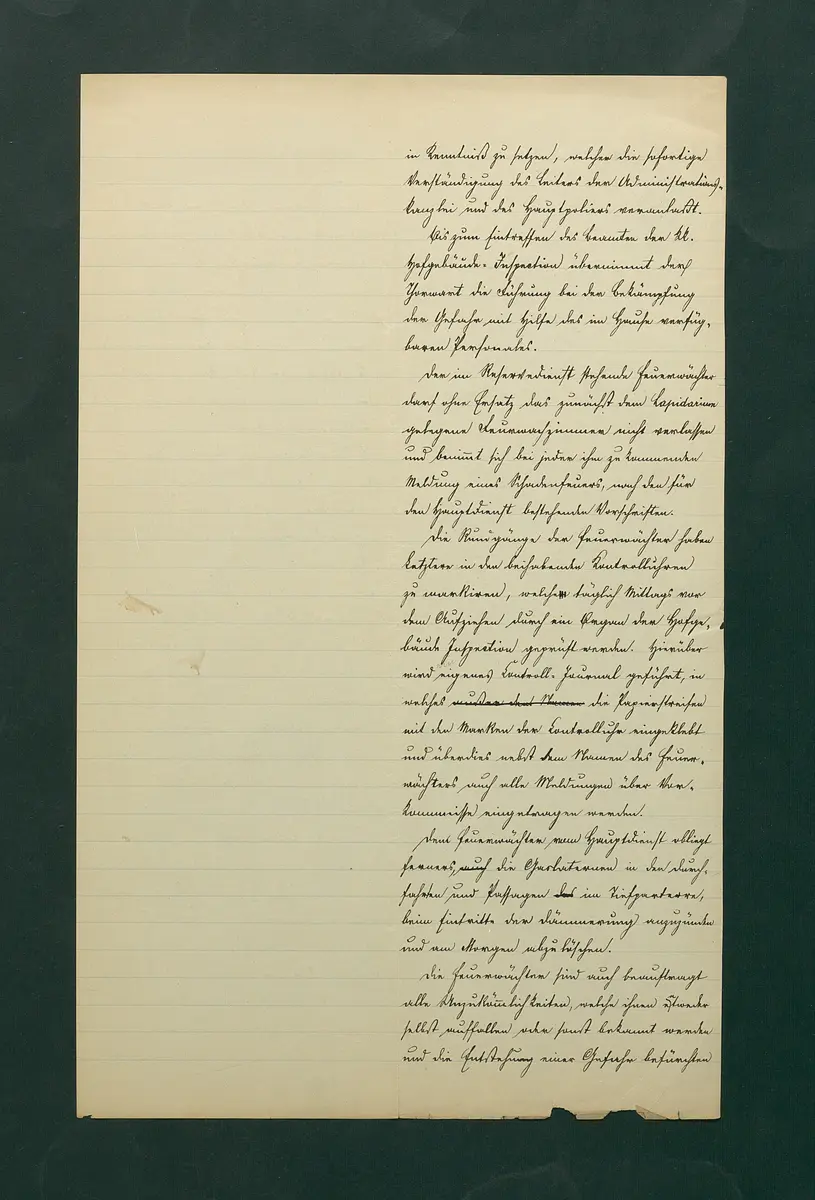 in Kenntniß zu setzen, welcher die sofortige
Verständigung des Leiters der Administrations-
kanzlei und des Hauptpoliers veranlaßt.
Bis zum Eintreffen des Beamten der kk.
Hofgebäude-Inspection übernimmt der
Thorwart die Führung bei der Bekämpfung
der Gefahr mit Hilfe des im Hause verfüg-
baren Personales.
Der im Reservedienst stehende Feuerwächter
darf ohne Ersatz das zunächst dem Lapidarium
gelegene Feuerwachzimmer nicht verlassen
und benimmt sich bei jeder ihm zukommenden
Meldung eines Schadenfeuers, nach den für
den Hauptdienst bestehenden Vorschriften.
Die Rundgänge der Feuerwächter haben
Letztere in den beihabenden Kontrolluhren
zu markiren, welche täglich Mittags vor
dem Aufziehen durch ein Organ der Hofge-
bäude Inspection geprüft werden. Hierüber
wird eigenes Controll-Journal geführt, in
welches außer dem Namen die Papierstreifen
mit den Marken der Controlluhr eingeklebt
und überdies nebst dem Namen des Feuer-
wächters auch alle Meldungen über Vor-
kommnisse eingetragen werden.
Dem Feuerwächter vom Hauptdienst obliegt
ferners, auch die Gaslaternen in den Durch-
fahrten und Passagen des im Tiefparterre,
beim Eintritte der Dämmerung anzuzünden
und am Morgen abzulöschen.
Die Feuerwächter sind auch beauftragt
alle Unzukömmlichkeiten, welche ihnen
selbst auffallen oder sonst bekannt werden
und die Entstehung einer Gefahr befürchten